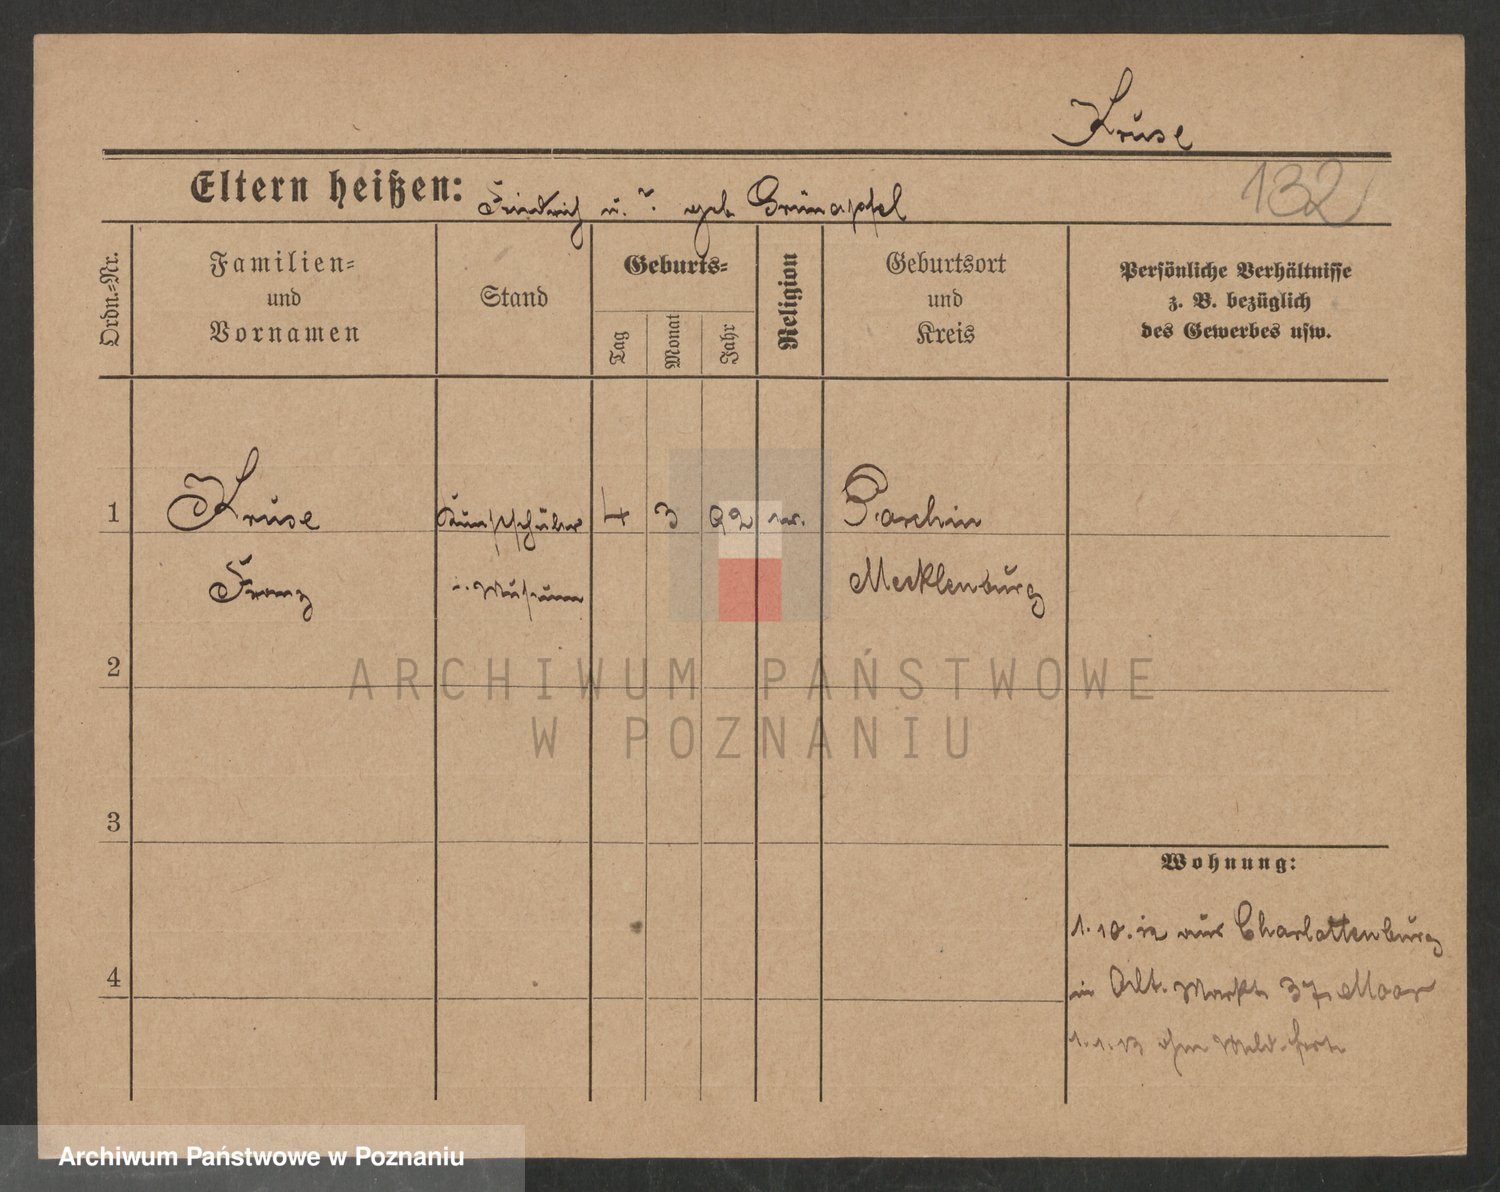 Kruse
132
Eltern heißen: Friedrich u. ? geb Grünapfel
Ordn.-Nr.
Familien-
und
Vornamen
Stand
Geburts-
Tag
Monat
Jahr
Religion
Geburtsort
und
Kreis
Persönliche Verhältnisse
z. B. bezüglich
des Gewerbes usw.
1
Kruse
Kunstschüler
4
3
92
ev.
Parchin
Franz
i. Museum
Mecklenburg
2
3
4
Wohnung:
1.10.12 aus Charlottenburg
in Alt. Markt 37,
1.1.13 ohne Meld. fort
ARCHIWUM PAŃSTWOWE
W POZNANIU
Archiwum Państwowe w Poznaniu